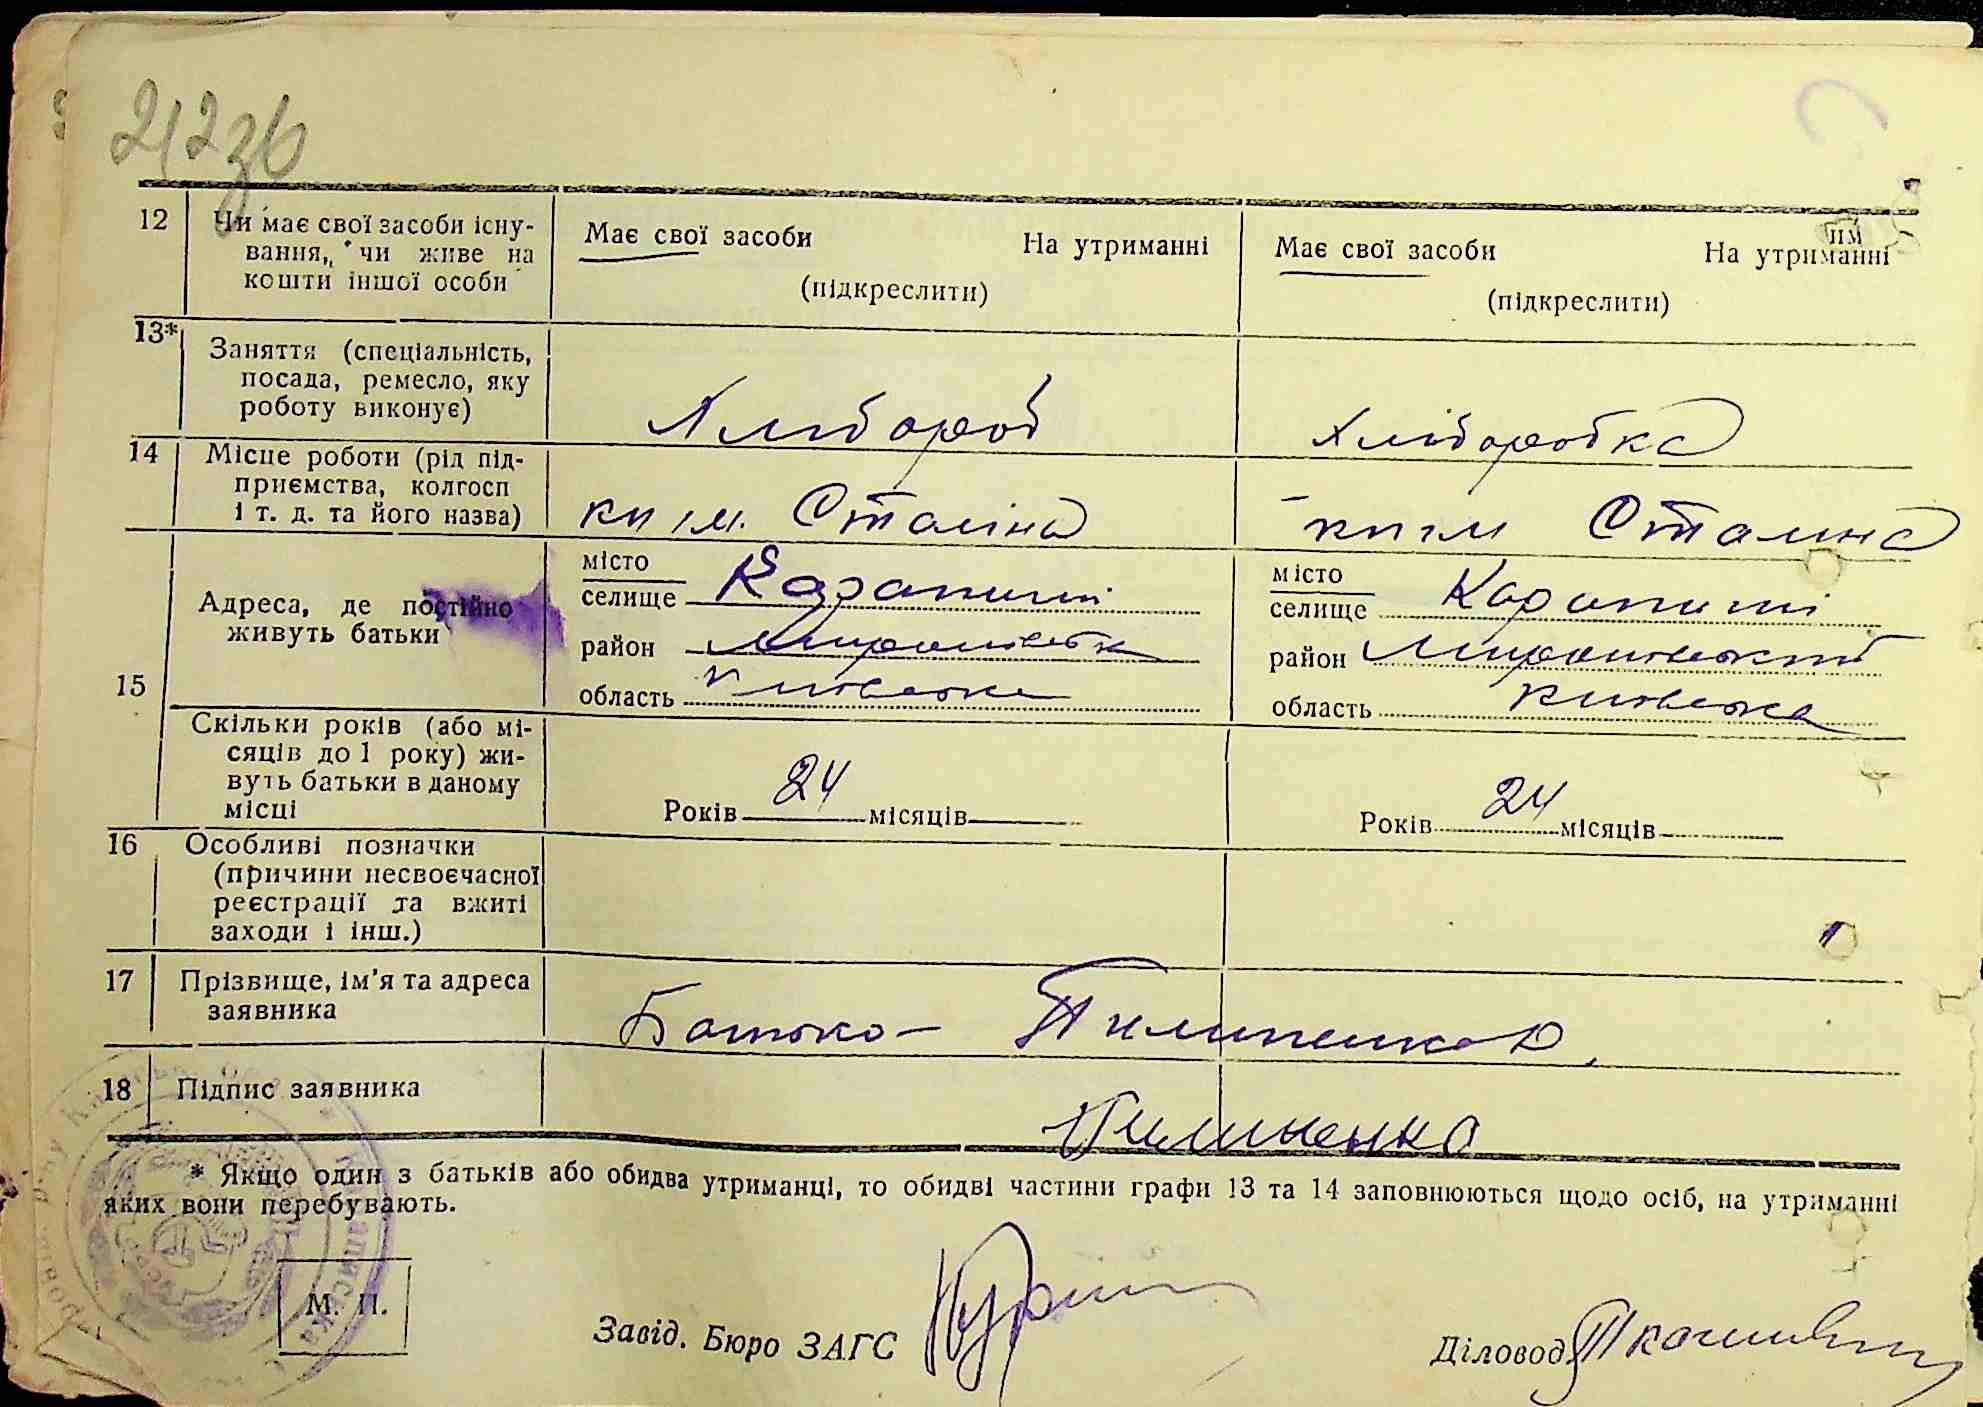 212зв
12 Чи має свої засоби існу- Має свої засоби На утриманні Має свої засоби На утриманні
вання, чи живе на
кошти іншої особи (підкреслити) (підкреслити)
13* Заняття (спеціальність,
посада, ремесло, яку
роботу виконує) Хлібороб Хліборобка
14 Місце роботи (рід під-
приємства, колгосп
і т. д. та його назва) кп ім. Сталіна кп ім Сталина
15 Адреса, де постійно
живуть батьки
місто
селище Карапиші
район Миронівськ
область Київська
місто
селище Карапиші
район Миронівський
область Київська
Скільки років (або мі-
сяців до 1 року) жи-
вуть батьки в даному
місці Років 24 місяців Років 24 місяців
16 Особливі позначки
(причини несвоєчасної
реєстрації та вжиті
заходи і інш.)
17 Прізвище, ім'я та адреса
заявника Батько – Пилипенко
18 Підпис заявника Пилипенко
* Якщо один з батьків або обидва утриманці, то обидві частини графи 13 та 14 заповнюються щодо осіб, на утриманні
яких вони перебувають.
М. П.
Завід. Бюро ЗАГС Діловод